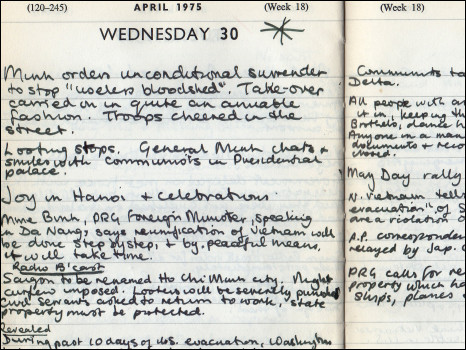 (120–245) APRIL 1975 (Week 18)
WEDNESDAY 30
Minh orders unconditional surrender
to stop "useless bloodshed". Take-over
carried on in quite an amiable
fashion. Troops cheered in the
street.
Looting stops. General Minh chats &
smiles with Communists in Presidential
palace.
Joy in Hanoi & celebrations
Mme Binh, PRG Foreign Minister, speaking
in Da Nang, says reunification of Vietnam will
be done step by step, & by peaceful means,
it will take time.
Radio B'cast
Saigon to be renamed Ho Chi Minh city. Night
curfew imposed. Looters will be severely punished
Civil servants asked to return to work, state
property must be protected.
Revealed
During past 10 days of U.S. evacuation, Washington
(Week 18)
Communists
Delta.
All people with
it in, keeping th
Brothels, dance h
Anyone in a man
documents & reco
closed.
May Day rally
N. Vietnam tell
evacuation" of S
area violation o
A.P. corresponden
relayed by Jap.
PRG calls for re
property which ha
ships, planes